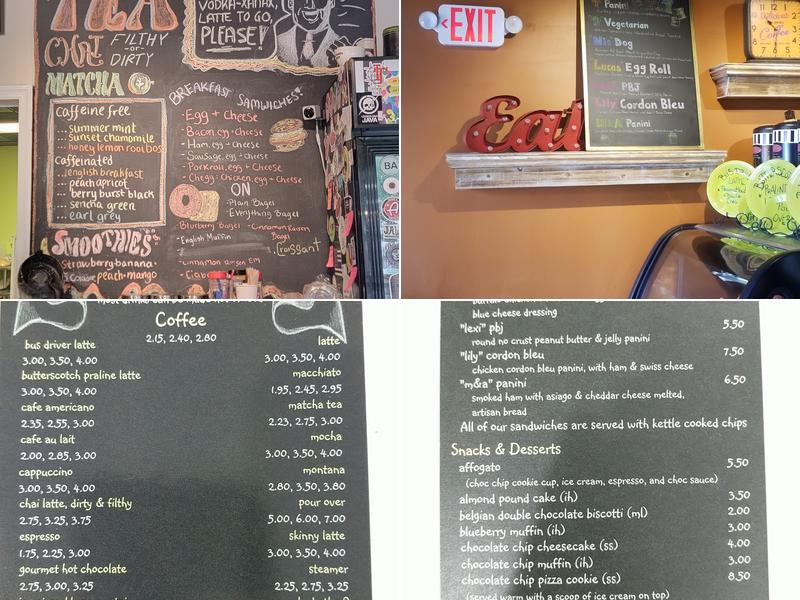 TEA
VODKA-XANAX,
LATTE TO GO,
PLEASE!
CHAI FILTHY
-or-
DIRTY
MATCHA
caffeine free
... summer mint
... sunset chamomile
... honey lemon rooibos
caffeinated
... english breakfast
... peach apricot
... berry burst black
... sencha green
... earl grey
SMOOTHIES
strawberry-banana
peach-mango
BREAKFAST SAMWICHES
-Egg + Cheese
-Bacon, egg + Cheese
-Ham, egg + Cheese
-Sausage, egg + Cheese
-Porkroll, egg + Cheese
-Chegg: Chicken, egg + Cheese
ON
-Plain Bagel
-Everything Bagel
-Blueberry Bagel
-Cinnamon Raisin
Bagel
-English Muffin
-Croissant
JAVA
EXIT
Eat
Panini
Vegetarian
Mic Dog
Lucas Egg Roll
PBJ
Lily Cordon Bleu
M&A Panini
Coffee
Coffee
2.15, 2.40, 2.80
bus driver latte
3.00, 3.50, 4.00
butterscotch praline latte
3.00, 3.50, 4.00
cafe americano
2.35, 2.55, 3.00
cafe au lait
2.00, 2.85, 3.00
cappuccino
3.00, 3.50, 4.00
chai latte, dirty & filthy
2.75, 3.25, 3.75
espresso
1.75, 2.25, 3.00
gourmet hot chocolate
2.75, 3.00, 3.25
latte
3.00, 3.50, 4.00
macchiato
1.95, 2.45, 2.95
matcha tea
2.23, 2.75, 3.00
mocha
3.00, 3.50, 4.00
montana
2.80, 3.50, 3.80
pour over
5.00, 6.00, 7.00
skinny latte
3.00, 3.50, 4.00
steamer
2.25, 2.75, 3.25
blue cheese dressing
"lexi" pbj 5.50
round no crust peanut butter & jelly panini
"lily" cordon bleu 7.50
chicken cordon bleu panini, with ham & swiss cheese
"m&a" panini 6.50
smoked ham with asiago & cheddar cheese melted,
artisan bread
All of our sandwiches are served with kettle cooked chips
Snacks & Desserts
affogato 5.50
(choc chip cookie cup, ice cream, espresso, and choc sauce)
almond pound cake (ih) 3.50
belgian double chocolate biscotti (ml) 2.00
blueberry muffin (ih) 3.00
chocolate chip cheesecake (ss) 4.00
chocolate chip muffin (ih) 3.00
chocolate chip pizza cookie (ss) 8.50
(served warm with a scoop of ice cream on top)